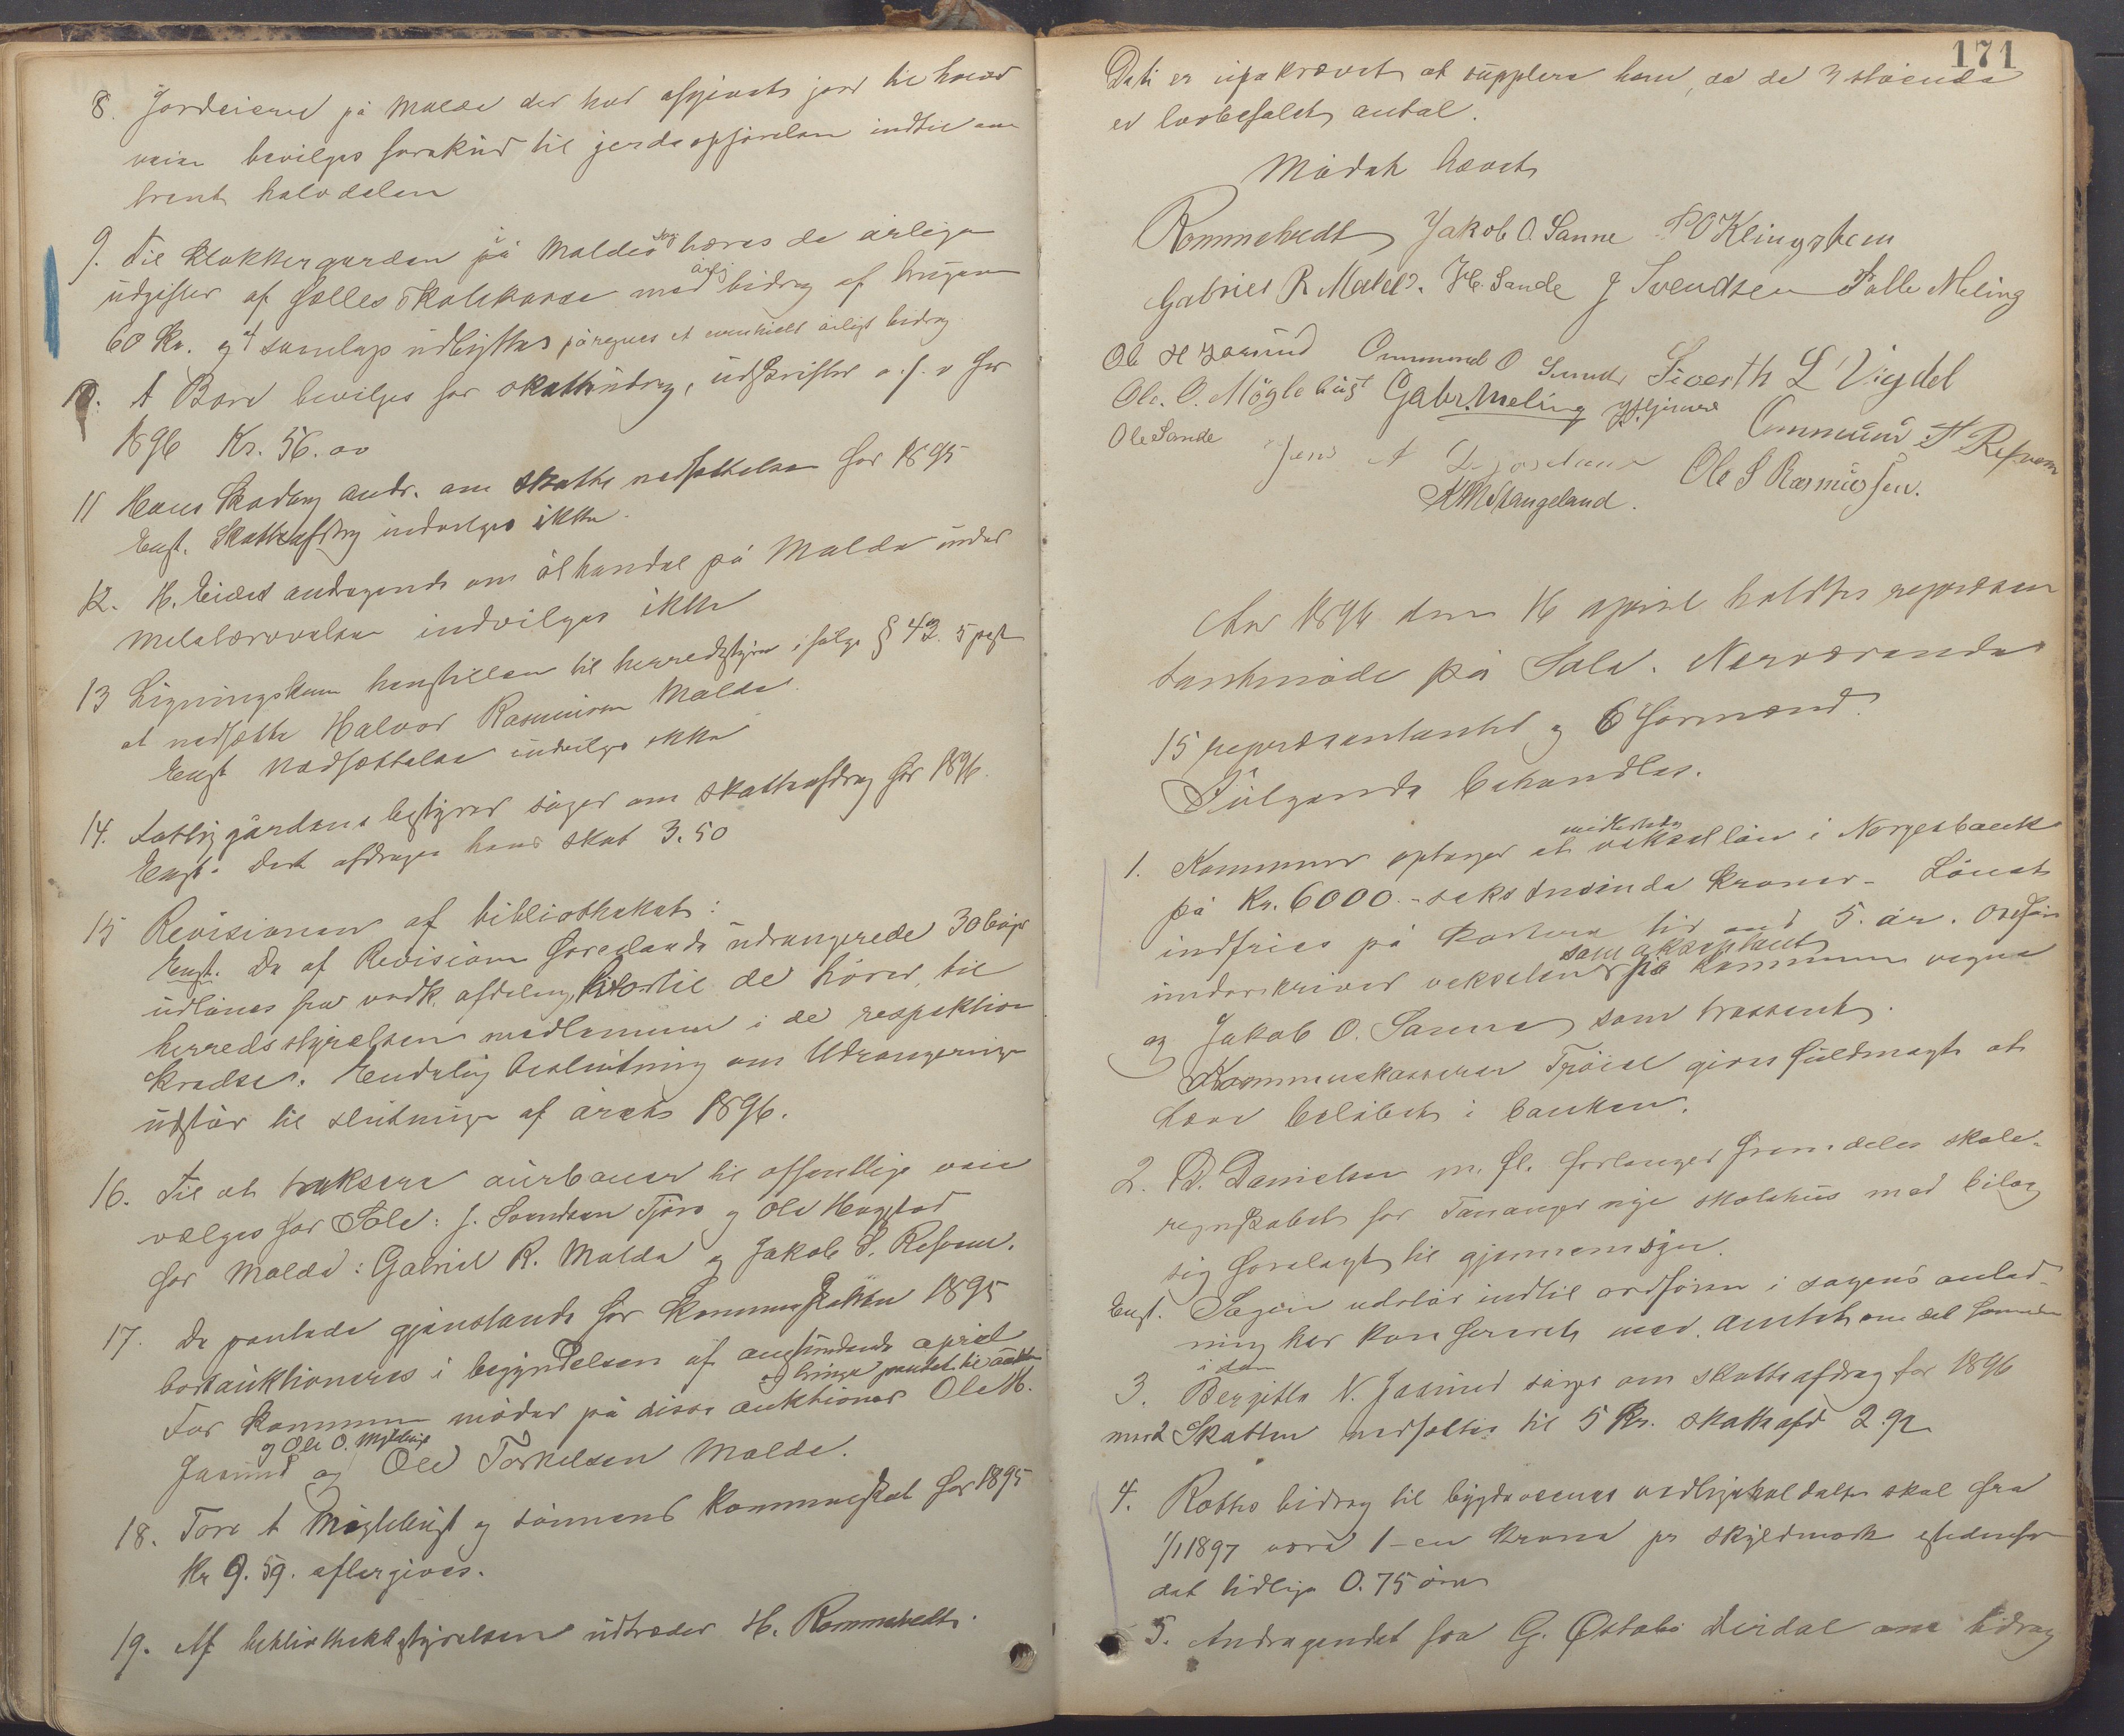 8. Jordeierne på Malde der har afgivet jord til hoved
veien bevilges forskud til gjerdeopførelsen indtil om
trent halvdelen
9. Til klokkergården på Malde bæres de årlige
udgifter af fælles skolekasse med årlig bidrag af
60 Kr. og af samlags udbyttes påregnes et eventuelt årligt bidrag
10. A Bore bevilges for skatteudrag, udskrifter o.s.v for
1896 Kr. 56.00
11 Hans Skadberg andr. om skatte nedsættelse for 1895
Enst. Skatteafdrag indvilges ikke.
12. H. Eides andragende om ølhandel på Malde under
indvilges ikke
13 Ligningskom henstillen til herredstyret ifølge § 43. 5 post
at nedsætte Halvor Rasmussen Malde
Enst Nedsættelse indvilges ikke
14. Fattiggårdens bestyrer søger om skatteafdrag for 1896.
Enst. Det afdrages hans skat 3.50
15 Revisionen af bibliotheket:
Enst. De af Revision foreslaaede udrangerede 30 bøger
udlånes fra vedk. afdeling, hvortil de hører, til
herredsstyrelsen medlemmer i de respektive
kredse. Endelig beslutning om Udrangering
udstår til slutningen af året 1896.
16. Til at taksere aurbaner til offentlige veie
vælges for Sole: J. Svendsen Tjora og Ole Haystad
for Malde: Gabriel R. Malde og Jakob S. Refsnes.
17. De pantede gjenstande for kommuneskatten 1895
bortauktioneres i begyndelsen af anstundende april
og bringe pantet til auktion
For kommunen møder på disse auktioner Ole H.
og Ole O. Myklebust
Jåsund og Ole Torkelsen Malde.
18. Tore A Myklebust og sønnens kommuneskat for 1895
Kr 9.59. eftergives.
19. Af bibliotheksbestyrelsen udtræder H. Rommetvedt.
171
Det er upåkrævet at supplere ham, da de 3 stående
er lovbefalet antal.
Mødet hævet
Rommetvedt Jakob O. Sanne P O Klingsheim
Gabriel R Malde. H. Sande J Svendsen Salle Meling
Ole H Jaasund Ommund O Sunde Siverth L Vigdel
Ole. O. Möglebúst Gabr. Meling
Ole Sande Jens A Ommund T Refsnes
A M Stangeland. Ole S Rasmussen.
Aar 1896 den 16 april holdtes repræsen
tantmøde på Sole. Nærværende
15 repræsentanter og 6 formænd.
Følgende behandles.
midlertidig
1. Kommunen optager et veksellån i Norges bank
på Kr. 6000.- seks tusinde kroner - Lånet
indfries på kortere tid end 5. år. Ordføreren
som akseptant
underskriver vekselen på kommunens vegne
og Jakob O. Sanne som trassent.
Kommunekasserer Trøiel gives fuldmagt at
hæve beløbet i banken.
2. D. Danielsen m. fl. forlanger fremdeles skole-
regnskabet for Tananger nye skolehus med bilag
sig forelagt til gjennemsyn.
Enst. Sagen udstår indtil ordføren i sagens anled-
ning har konfereret med. amtet om det fornødne
i den
3. Bergitte N. Jaasund søger om skatteafdrag for 1896
med Skatten nedsættes til 5 Kr. skatteafd 2.92
4. Rotts bidrag til bygdeveienes vedligeholdelse skal fra
1/1 1897 være 1 - en krone pr skyldmark istedenfor
det tidlige 0.75 øre
5. Andragendet fra G. Østabø Dirdal om bidrag